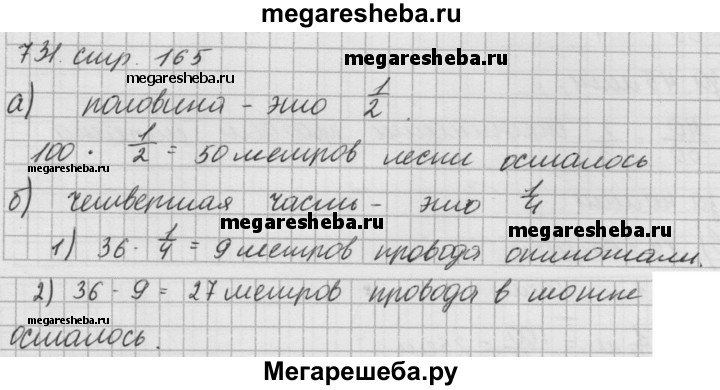 megaresheba.ru
731. стр. 165
megaresheba.ru
megaresheba.ru
а) половина - это 1/2.
100 · 1/2 = 50 метров лески осталось
megaresheba.ru
б) четвертая часть - это 1/4
megaresheba.ru
1) 36 · 1/4 = 9 метров провода отмотали.
2) 36 - 9 = 27 метров провода в мотке
megaresheba.ru
осталось.
megaresheba.ru
Мегарешеба.ру